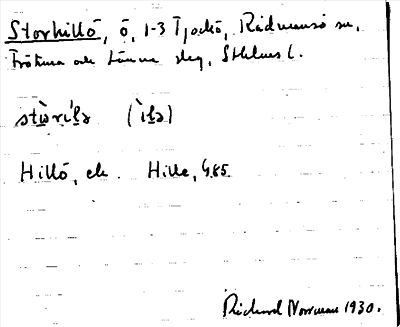 Storhillö, ö, 1-3 Tjockö, Rådmansö sn,
Frötuna och Länna skg, Sthlms l.
stùrílə (ìlə)
Hillö, ek. Hille, G.85.
Rickard Norrman 1930.